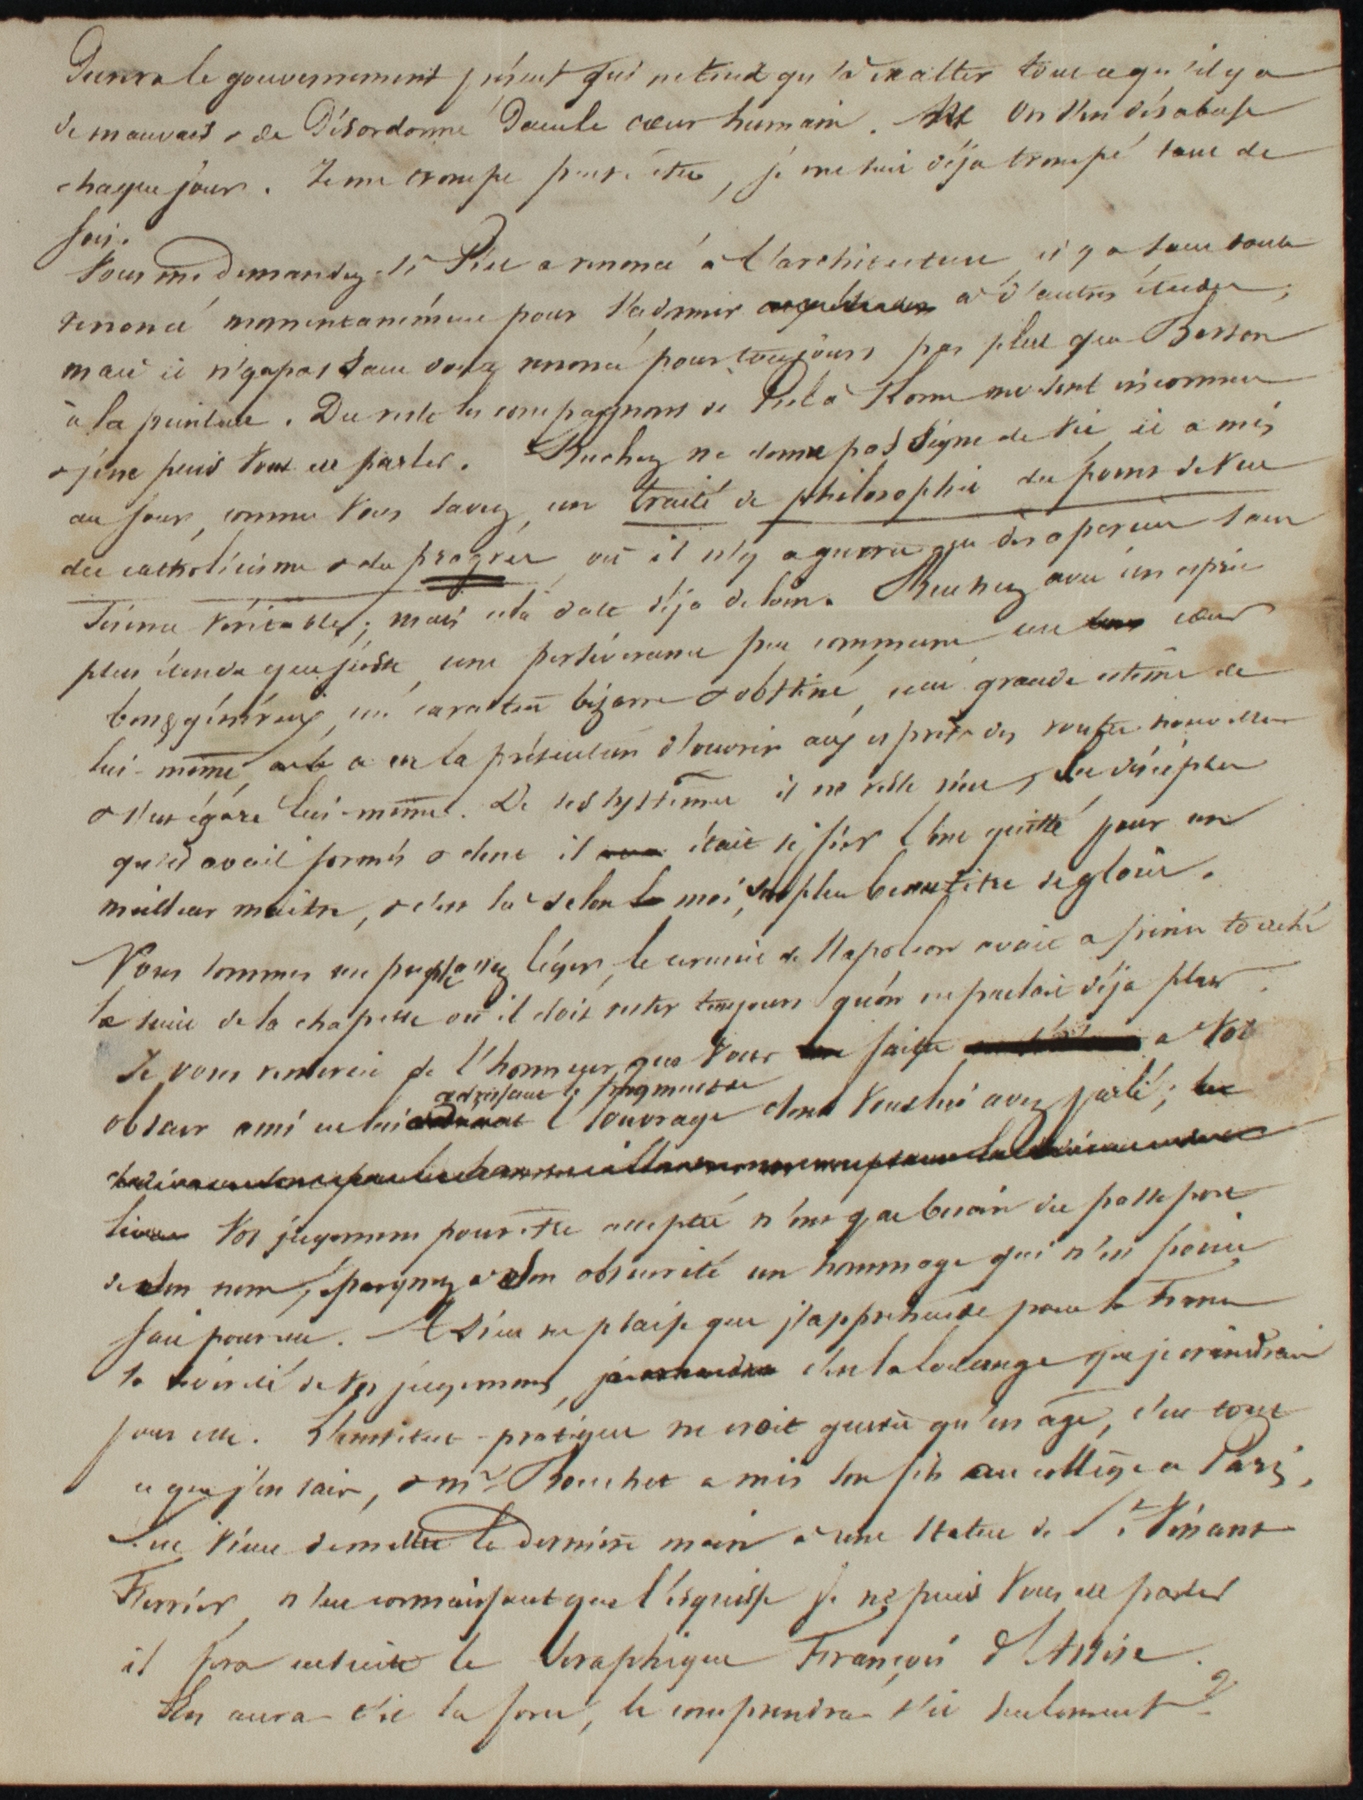 Durera le gouvernement présent qui ne tend qu'à exalter tout ce qu'il y a
de mauvais & de Désordonné Dans le cœur humain. On s'en désabuse
chaque jour. Je me trompe peut-être, je me suis déja trompé tant de
fois.
Vous me demandez si Piel a renoncé à l'architecture, il y a sans doute
renoncé momentanément pour s'adonner à d'autres études,
mais il n'y a pas sans doute renoncé pour toujours pas plus que Besson
à la peinture. Du reste les compagnons de Piel à Rome me sont inconnus
& je ne puis vous en parler. Buchez ne donne pas signe de vie, il a mis
au jour, comme vous savez, un traité de philosophie du point de vue
du catholicisme & du progrès, où il n'y a guerre que des aperçus sans
science véritable; mais cela date déja de loin. Buchez avec un esprit
plus étendu que juste, une persévérance peu commune, un cœur
bon & généreux, un caractère bizarre & obstiné, une grande estime de
lui-même a eu la prétention d'ouvrir aux esprits des routes nouvelles
& s'est égaré lui-même. De ses systêmes il ne reste rien, les disciples
qu'il avait formés & dont il était si fier l'ont quitté pour un
meilleur maître, & c'est là selon moi, son plus beau titre de gloire.
Nous sommes un peuple assez léger, le cercueil de Napoléon avait à peine touché
le seuil de la chapelle où il doit rester toujours qu'on n'en parlait déja plus.
Je vous remercie de l'honneur que vous faites à votre
obscur ami en lui adressant le fragment de l'ouvrage dont vous lui avez parlé;
Vos jugemens pour être acceptés n'ont pas besoin du passeport
de son nom, épargnez à son obscurité un hommage qui n'est point
fait pour elle. A Dieu ne plaise que j'appréhende pour la France
la sévérité de vos jugemens, c'est la louange que je craindrais
pour elle. L'institut-pratique ne croit guerre qu'en âge, c'est tout
ce que j'en sais, & mr. Bouchet a mis son fils au collège à Paris,
vient de mettre la dernière main à une statue de St. Vincent
Ferrier, n'en connaissant que l'esquisse je ne puis vous en parler
il fera ensuite le Séraphique François d'Assise.
En aura-t-il la force, le comprendra-t-il seulement?